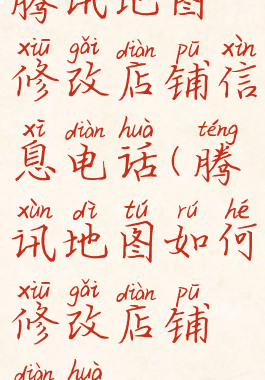 腾讯地图
xiū gǎi diàn pū xìn
修改店铺信
xī diàn huà téng
息电话(腾
xùn dì tú rú hé
讯地图如何
xiū gǎi diàn pū
修改店铺
diàn huà